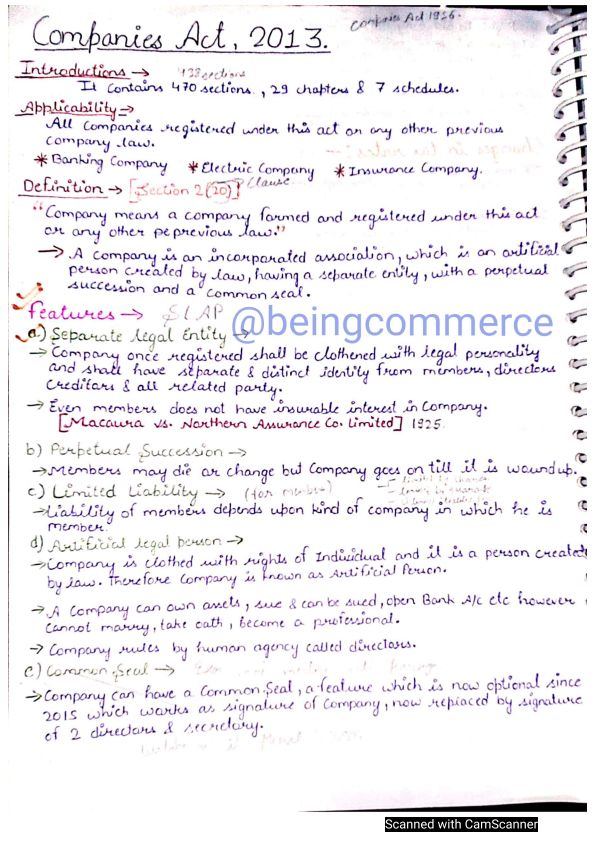 Companies Act 1956.
Companies Act, 2013.
Introductions →
438 sections
It Contains 470 sections, 29 chapters & 7 schedules.
Applicability →
All Companies registered under this act or any other previous
Company law.
* Banking Company * Electric Company * Insurance Company.
Definition → [Section 2(20)] Clause
"Company means a company formed and registered under this act
or any other pe previous law."
→ A Company is an incorporated association, which is an artificial
person created by law, having a separate entity, with a perpetual
succession and a Common seal.
features → SLAP
@beingcommerce
a.) Separate legal Entity →
→ Company once registered shall be clothened with legal personality
and shall have separate & distinct identity from members, directors
Creditors & all related party.
→ Even members does not have insurable interest in Company.
[Macaura vs. Northern Assurance Co. Limited] 1925.
b) Perpetual Succession →
→ Members may die or change but Company goes on till it is woundup.
c.) Limited Liability → (for member)
→ Liability of members depends upon kind of company in which he is
member.
d) Artificial legal person →
→ Company is clothed with rights of Individual and it is a person created
by law. Therefore Company is known as Artificial Person.
→ A Company can own assets, sue & can be sued, open Bank A/c etc however
cannot marry, take oath, become a professional.
→ Company rules by human agency called directors.
e.) Common Seal →
→ Company can have a Common Seal, a feature which is now optional since
2015 which works as signature of Company, now replaced by signature
of 2 directors & secretary.
Scanned with CamScanner